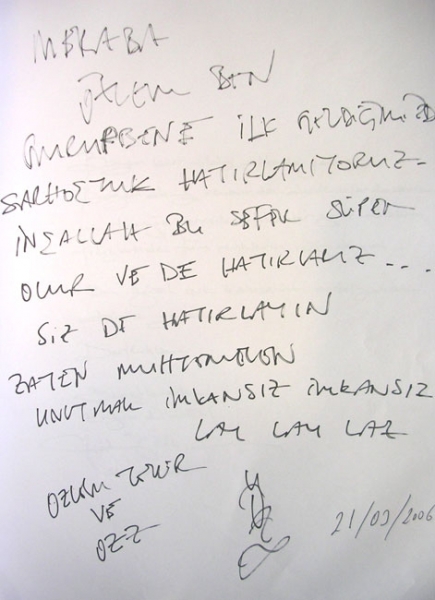 MERABA
ÖZLEM BEN
İLK GELDİĞİMİZDE
SARHOŞTUK HATIRLAMIYORUZ-
İNŞALLAH BU SEFER SÜPER
OLUR VE DE HATIRLARIZ...
SİZ DE HATIRLAYIN
ZATEN
UNUTMAK İMKANSIZ İMKANSIZ
LAY LAY LAY
OZLEM
VE
OZZ
21/09/2006